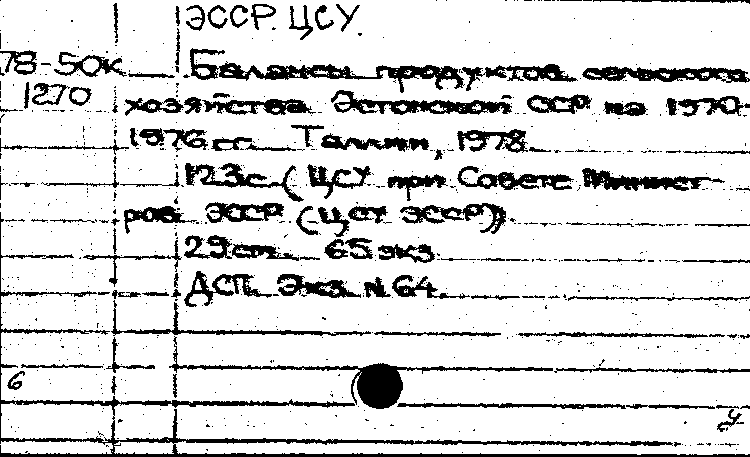 ЭССР. ЦСУ.
78-50к Балансы продуктов сельскохоз
1270 хозяйства Эстонской ССР на 1970-
1976 гг. Таллин, 1978.
123с. (ЦСУ при Совете Минист-
ров ЭССР (ЦСУ ЭССР))
29см. 65 экз
ДСП. Экз. N 64.
6